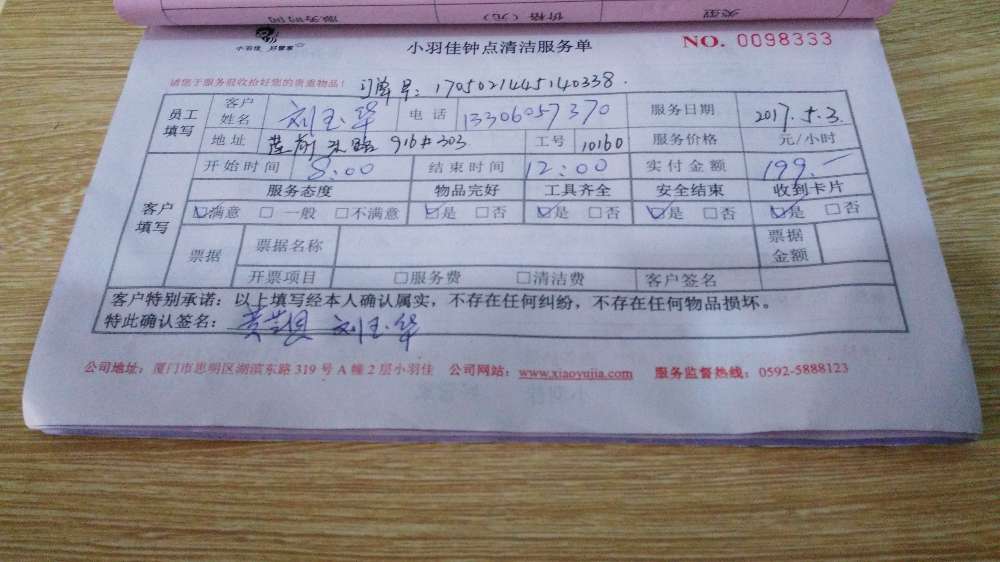 服务时间 价格(元) 类型
小羽佳 好管家
小羽佳钟点清洁服务单 NO. 0098333
请您于服务前收拾好您的贵重物品! 订单号: 1705021445140338.
员工填写 客户姓名 刘玉华 电话 13306057370 服务日期 2017.5.3.
地址 莲前东路 916# 303 工号 10160 服务价格 元/小时
客户填写 开始时间 8:00 结束时间 12:00 实付金额 199.—
服务态度 物品完好 工具齐全 安全结束 收到卡片
☑满意 □一般 □不满意 ☑是 □否 ☑是 □否 ☑是 □否 ☑是 □否
票据 票据名称 票据金额
开票项目 □服务费 □清洁费 客户签名
客户特别承诺:以上填写经本人确认属实,不存在任何纠纷,不存在任何物品损坏。
特此确认签名: 刘玉华
公司地址:厦门市思明区湖滨东路 319 号 A 幢 2 层小羽佳 公司网站:www.xiaoyujia.com 服务监督热线:0592-5888123